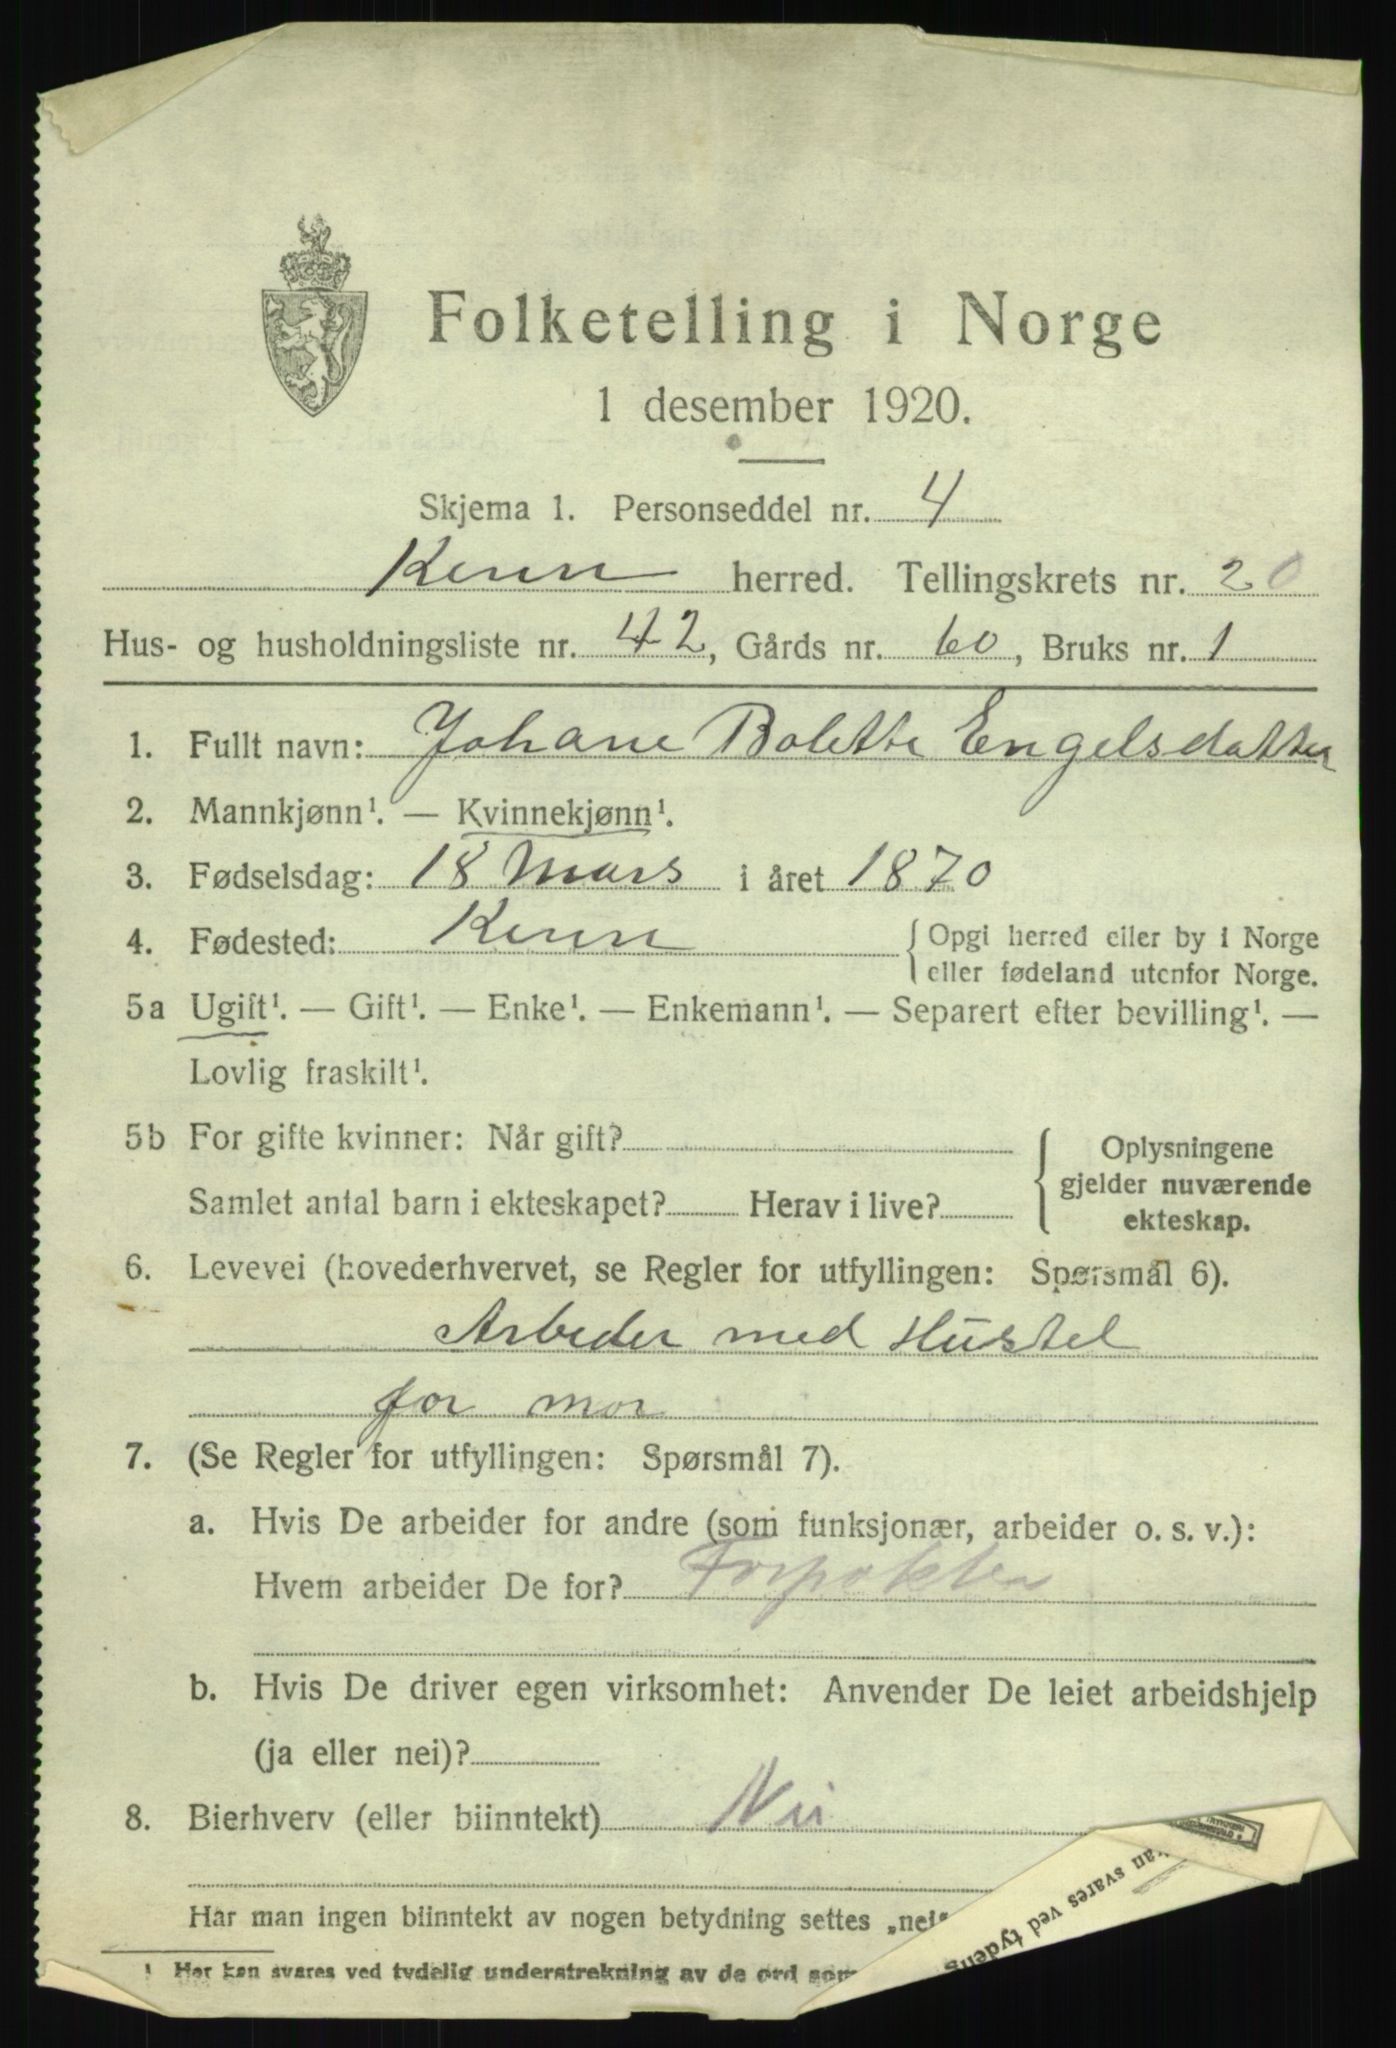 Folketelling i Norge
1 desember 1920.
Skjema 1. Personseddel nr. 4
Kinn herred. Tellingskrets nr. 20
Hus- og husholdningsliste nr. 42, Gårds nr. 60, Bruks nr. 1
1. Fullt navn: Johane Bolette Engelsdatter
2. Mannkjønn¹. — Kvinnekjønn¹.
3. Fødselsdag: 18 Mars i året 1870
4. Fødested: Kinn { Opgi herred eller by i Norge
eller fødeland utenfor Norge.
5a Ugift¹. — Gift¹. — Enke¹. — Enkemann¹. — Separert efter bevilling¹. —
Lovlig fraskilt¹.
5b For gifte kvinner: Når gift?
Samlet antal barn i ekteskapet? Herav i live?
{ Oplysningene
gjelder nuværende
ekteskap.
6. Levevei (hovederhvervet, se Regler for utfyllingen: Spørsmål 6).
Arbeder med Hustel
for mor
7. (Se Regler for utfyllingen: Spørsmål 7).
a. Hvis De arbeider for andre (som funksjonær, arbeider o. s. v.):
Hvem arbeider De for?
b. Hvis De driver egen virksomhet: Anvender De leiet arbeidshjelp
(ja eller nei)?
8. Bierhverv (eller biinntekt) Nei
Har man ingen biinntekt av nogen betydning settes „nei
¹ Her kan svares ved tydelig understrekning av de ord som
kan svares ved tydelig